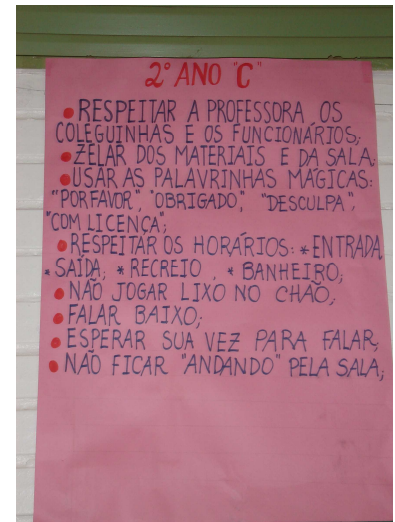 2º ANO "C"
• RESPEITAR A PROFESSORA OS
COLEGUINHAS E OS FUNCIONÁRIOS;
• ZELAR DOS MATERIAIS E DA SALA;
• USAR AS PALAVRINHAS MÁGICAS:
"POR FAVOR", "OBRIGADO", "DESCULPA",
"COM LICENÇA";
• RESPEITAR OS HORÁRIOS: * ENTRADA,
* SAÍDA, * RECREIO, * BANHEIRO;
• NÃO JOGAR LIXO NO CHÃO;
• FALAR BAIXO;
• ESPERAR SUA VEZ PARA FALAR;
• NÃO FICAR "ANDANDO" PELA SALA;